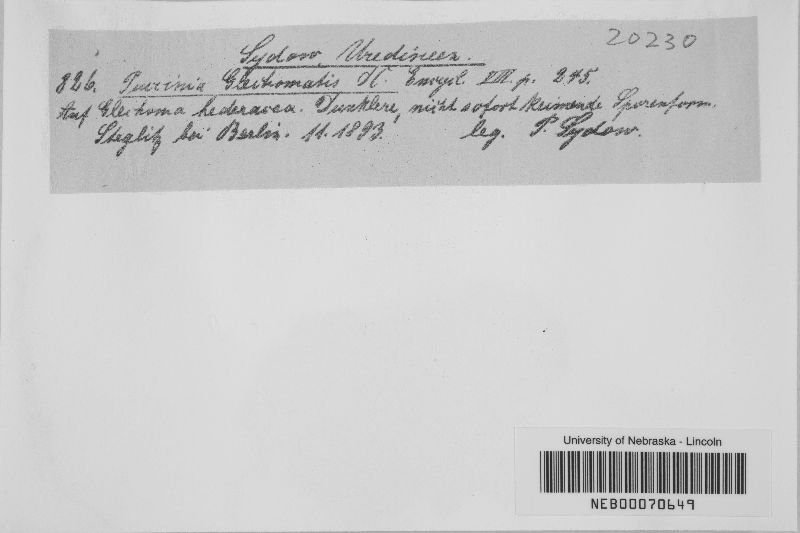 20230
Sydow, Uredineen.
826. Puccinia Glechomatis DC. Encycl. VIII. p. 245.
Auf Glechoma hederacea. Dunklere, nicht sofort keimende Sporenform.
Steglitz bei Berlin. 11. 1893. leg. P. Sydow.
University of Nebraska - Lincoln
NEB00070649